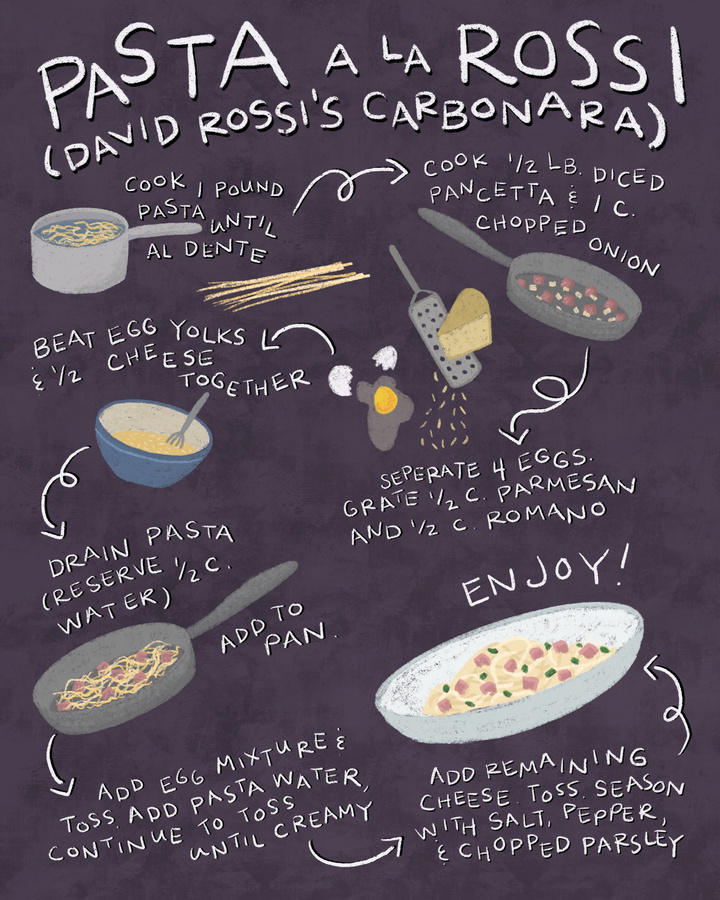 PASTA A LA ROSSI
(DAVID ROSSI'S CARBONARA)
COOK 1 POUND
PASTA UNTIL
AL DENTE
COOK 1/2 LB. DICED
PANCETTA & 1 C.
CHOPPED
ONION
SEPERATE 4 EGGS.
GRATE 1/2 C. PARMESAN
AND 1/2 C. ROMANO
BEAT EGG YOLKS
& 1/2 CHEESE
TOGETHER
DRAIN PASTA
(RESERVE 1/2 C.
WATER)
ADD TO
PAN.
ADD EGG MIXTURE &
TOSS. ADD PASTA WATER,
CONTINUE TO TOSS
UNTIL CREAMY
ADD REMAINING
CHEESE. TOSS. SEASON
WITH SALT, PEPPER,
& CHOPPED PARSLEY
ENJOY!